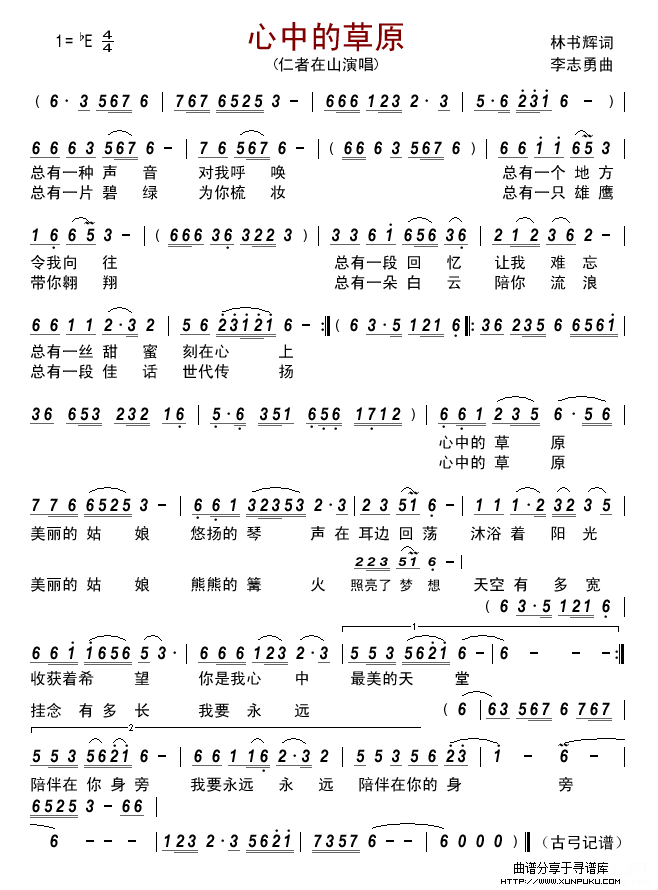 心中的草原
1= ♭E 4/4
(仁者在山演唱)
林书辉词
李志勇曲
( 6· 3 567 6 | 767 6525 3 - | 666 123 2· 3 | 5·6 231 6 - )
6 6 6 3 567 6 - | 7 6 567 6 - | ( 66 6 3 567 6 ) | 6 6 1 1 65 3
总有一种 声 音 对我呼 唤 总有一个 地 方
总有一片 碧 绿 为你梳 妆 总有一只 雄 鹰
1 6 6 5 3 - | ( 666 36 322 3 ) | 3 3 6 1 656 36 | 2 1 2 3 6 2 - |
令我向 往 总有一段 回 忆 让我 难 忘
带你翱 翔 总有一朵 白 云 陪你 流 浪
6 6 1 1 2·3 2 | 5 6 23121 6 - :|| ( 6 3·5 121 6 ||: 36 235 6 6561 |
总有一丝 甜 蜜 刻在心 上
总有一段 佳 话 世代传 扬
36 653 232 16 | 5·6 351 656 1712 ) | 6 6 1 2 3 5 6· 56 |
心中的 草 原
心中的 草 原
7 7 6 6525 3 - | 6 6 1 32353 2·3 | 2 3 51 6 - | 1 1 1·2 32 35 |
美丽的 姑 娘 悠扬的 琴 声 在 耳边 回 荡 沐浴 着 阳 光
223 51 6 -
美丽的 姑 娘 熊熊的 篝 火 照亮了 梦 想 天空 有 多 宽
( 6 3·5 121 6 |
1
6 6 1 1656 53· | 6 6 6 123 2·3 | 5 5 3 5621 6 - | 6 - - :||
收获着希 望 你是我心 中 最美的天 堂
挂念 有 多 长 我要 永 远
( 6 | 63 567 6 767 |
2
5 5 3 5621 6 - | 6 6 1 16 2·3 2 | 5 5 3 5 6 23 | 1 - - 6
陪伴在 你 身 旁 我要永远 永 远 陪伴在你的 身 旁
6525 3 - 66 |
6 - - - | 123 2·3 5621 | 7357 6 - - | 6 0 0 0 ) ||
(古弓记谱)
曲谱分享于寻谱库
HTTP://WWW.XUNPUKU.COM